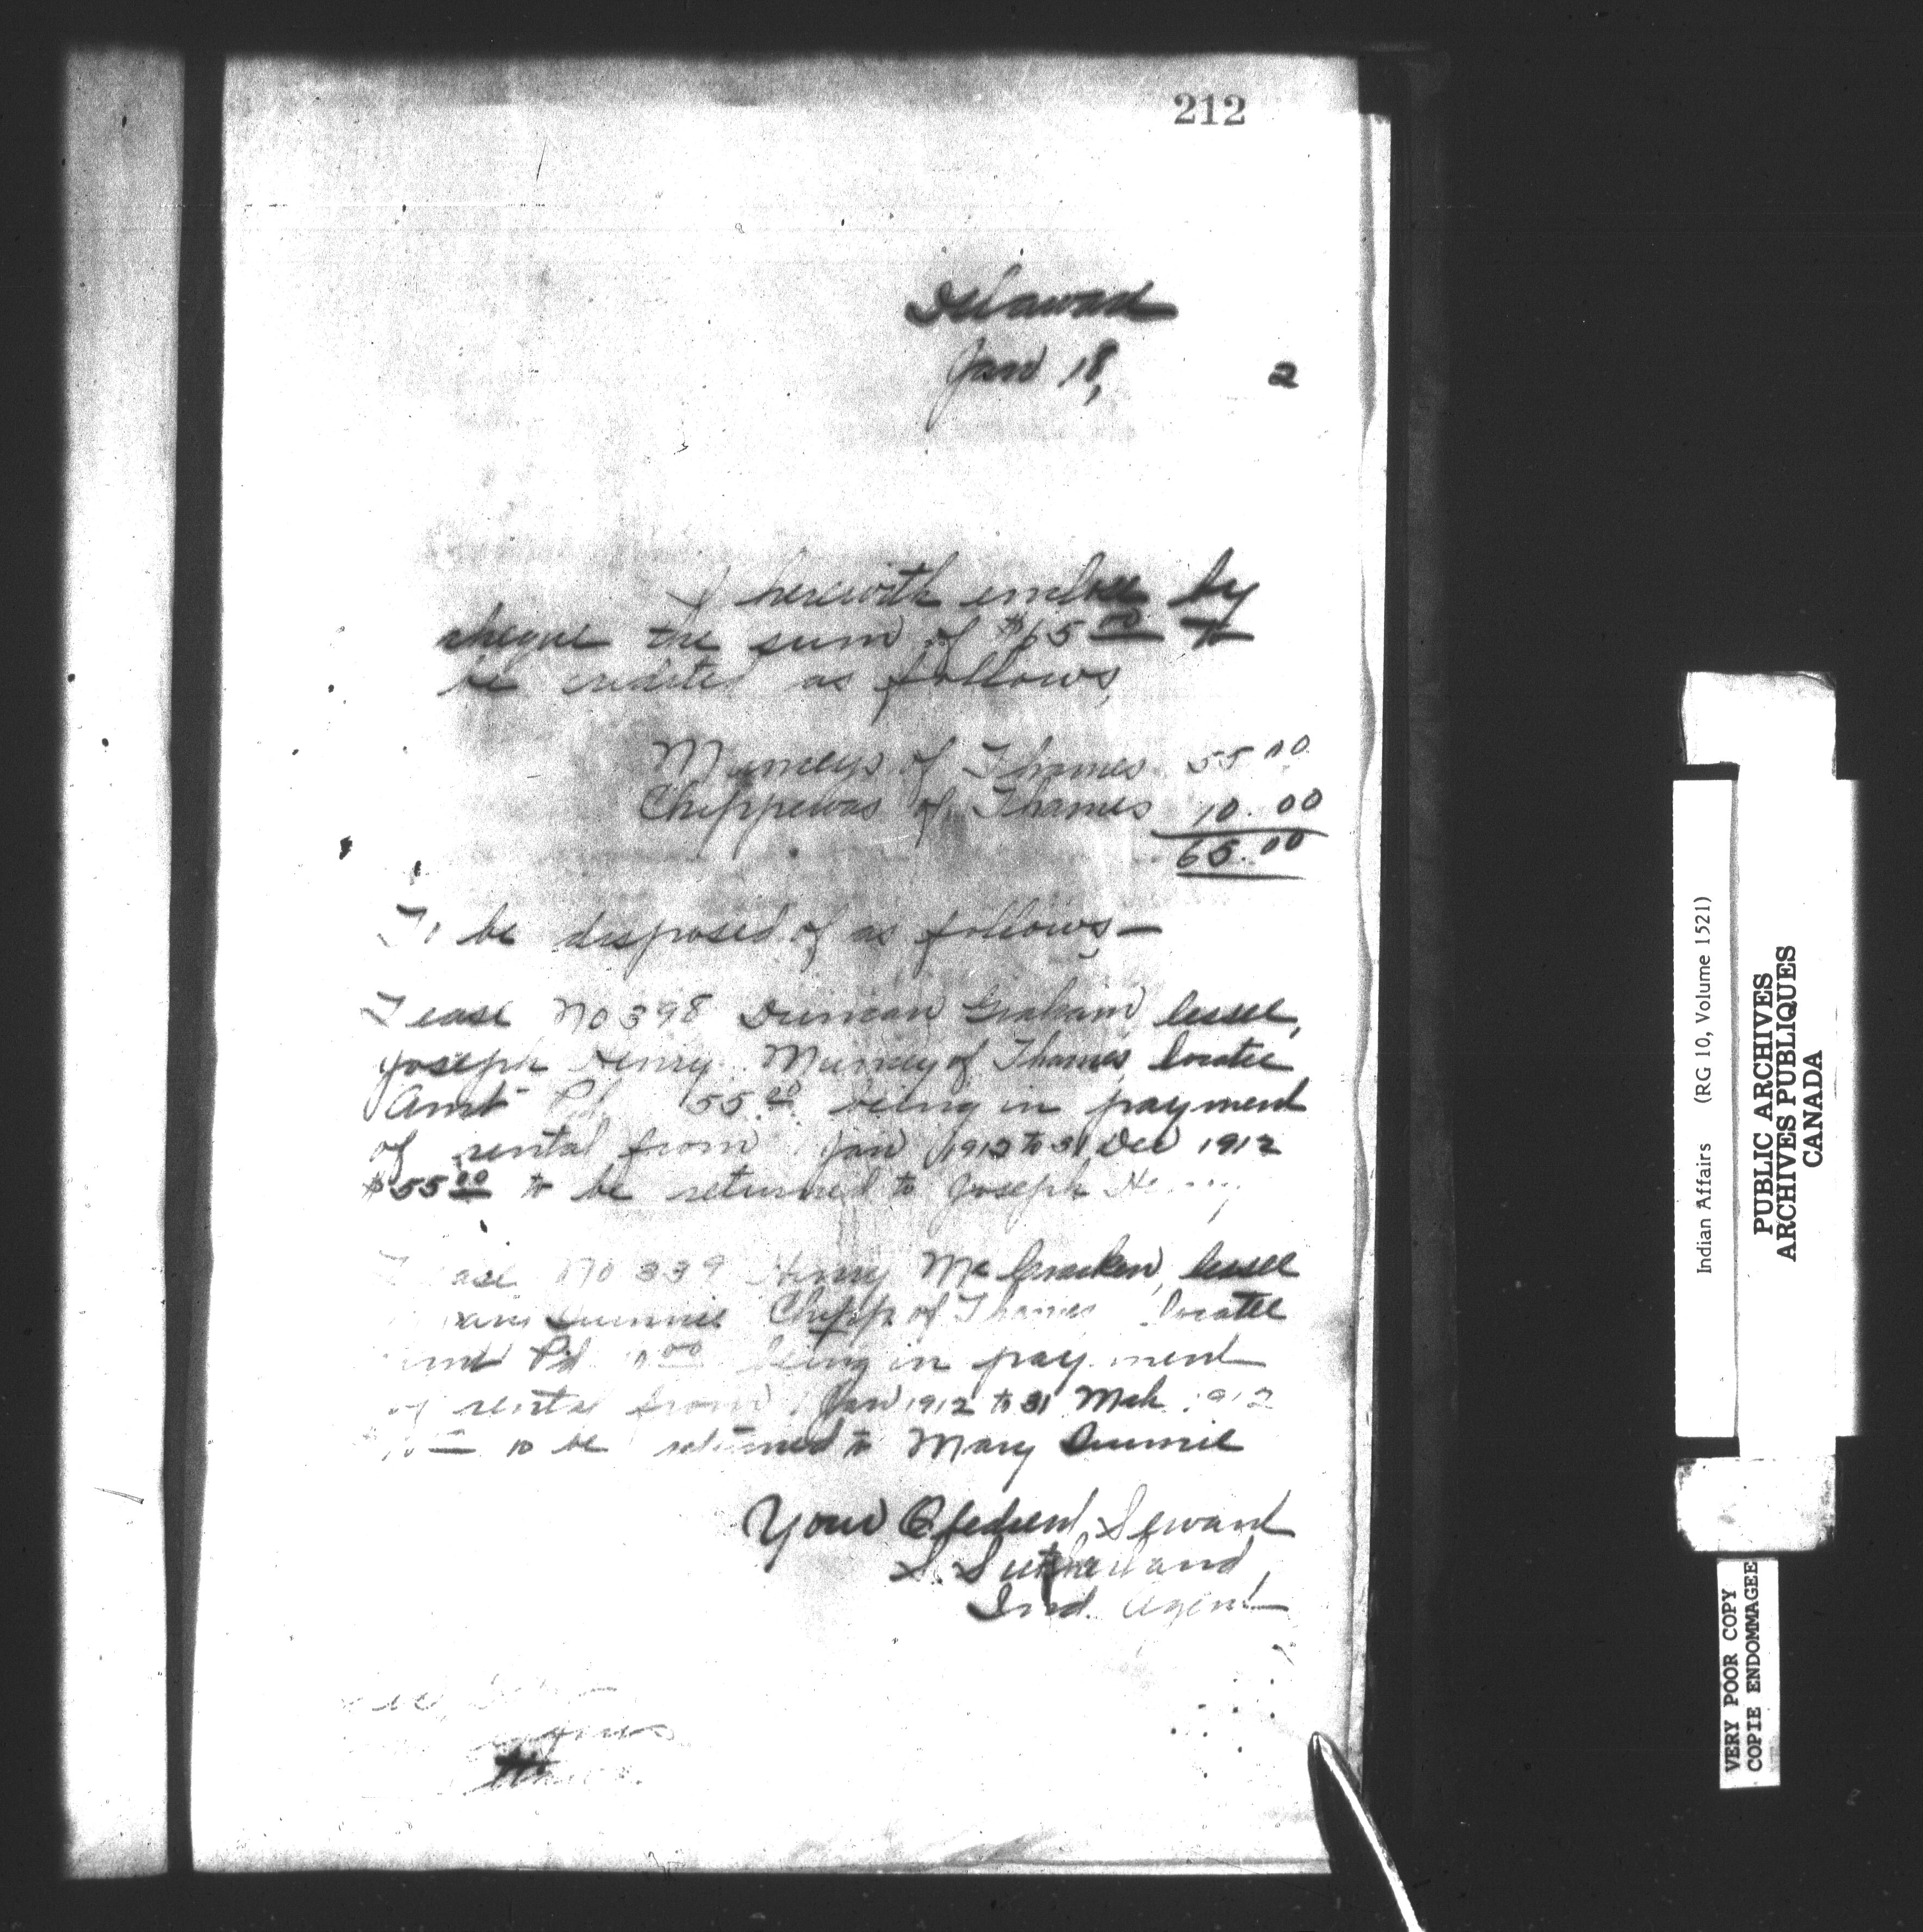 212
Delaware
Jan 18, 2
I herewith enclose by
cheque the sum of $65.00 to
be credited as follows,
Munceys of Thames 55.00
Chippewas of Thames 10.00
65.00
To be disposed of as follows—
Lease No 398 Duncan Graham lessee,
Joseph Henry Muncey of Thames, locatee
Amt Pd 55.00 being in payment
of rental from 1 Jan 1912 to 31 Dec 1912
$55.00 to be returned to Joseph Henry
Lease No 339 Henry McCracken, lessee
Chipp of Thames locatee
Amt Pd being in payment
of rental from 1 Jan 1912 to 31 Mch 1912
to be returned to Mary
Your Obedient Servant
S. Sutherland,
Ind. Agent
Indian Affairs (RG 10, Volume 1521)
PUBLIC ARCHIVES
ARCHIVES PUBLIQUES
CANADA
VERY POOR COPY
COPIE ENDOMMAGEE